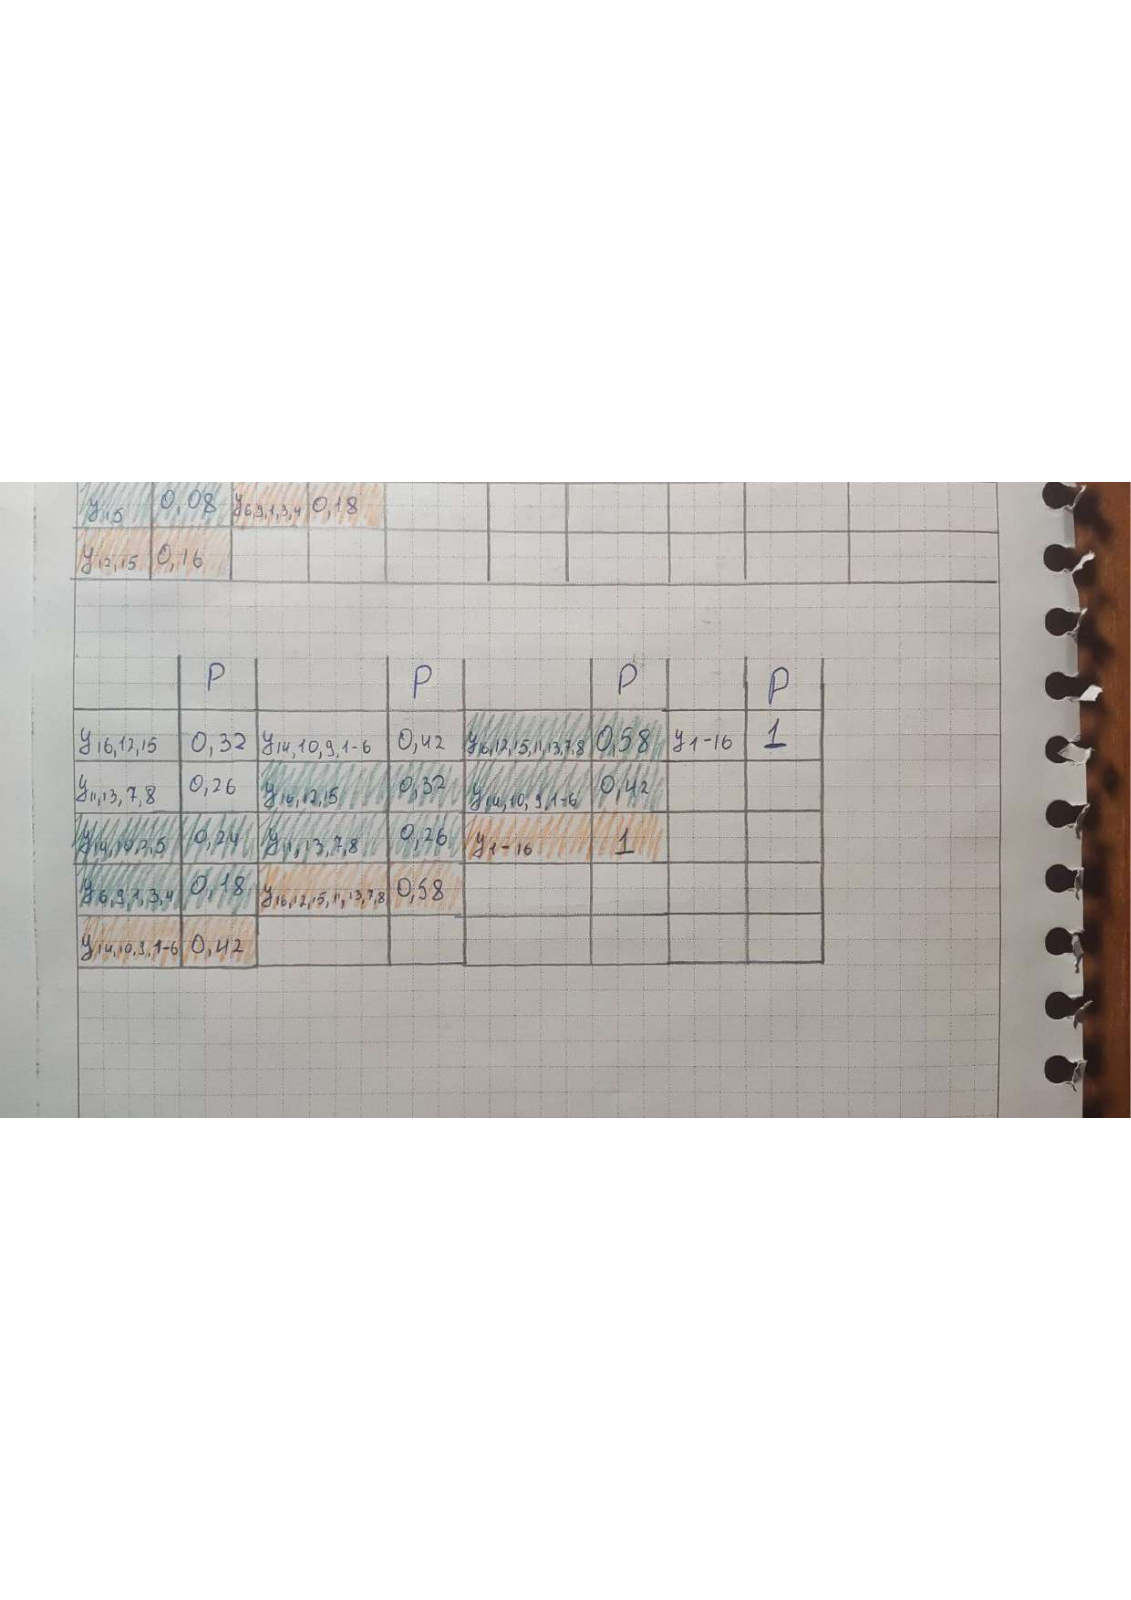 y15 0,08 y6,9,1,3,4 0,18
y12,15 0,16
P P P P
y16,12,15 0,32 y14,10,9,1-6 0,42 y16,12,15,11,13,7,8 0,58 y1-16 1
y11,13,7,8 0,26 y16,12,15 0,32 y14,10,9,1-6 0,42
y14,10,2,5 0,24 y11,13,7,8 0,26 y1-16 1
y6,9,1,3,4 0,18 y16,12,15,11,13,7,8 0,58
y14,10,9,1-6 0,42